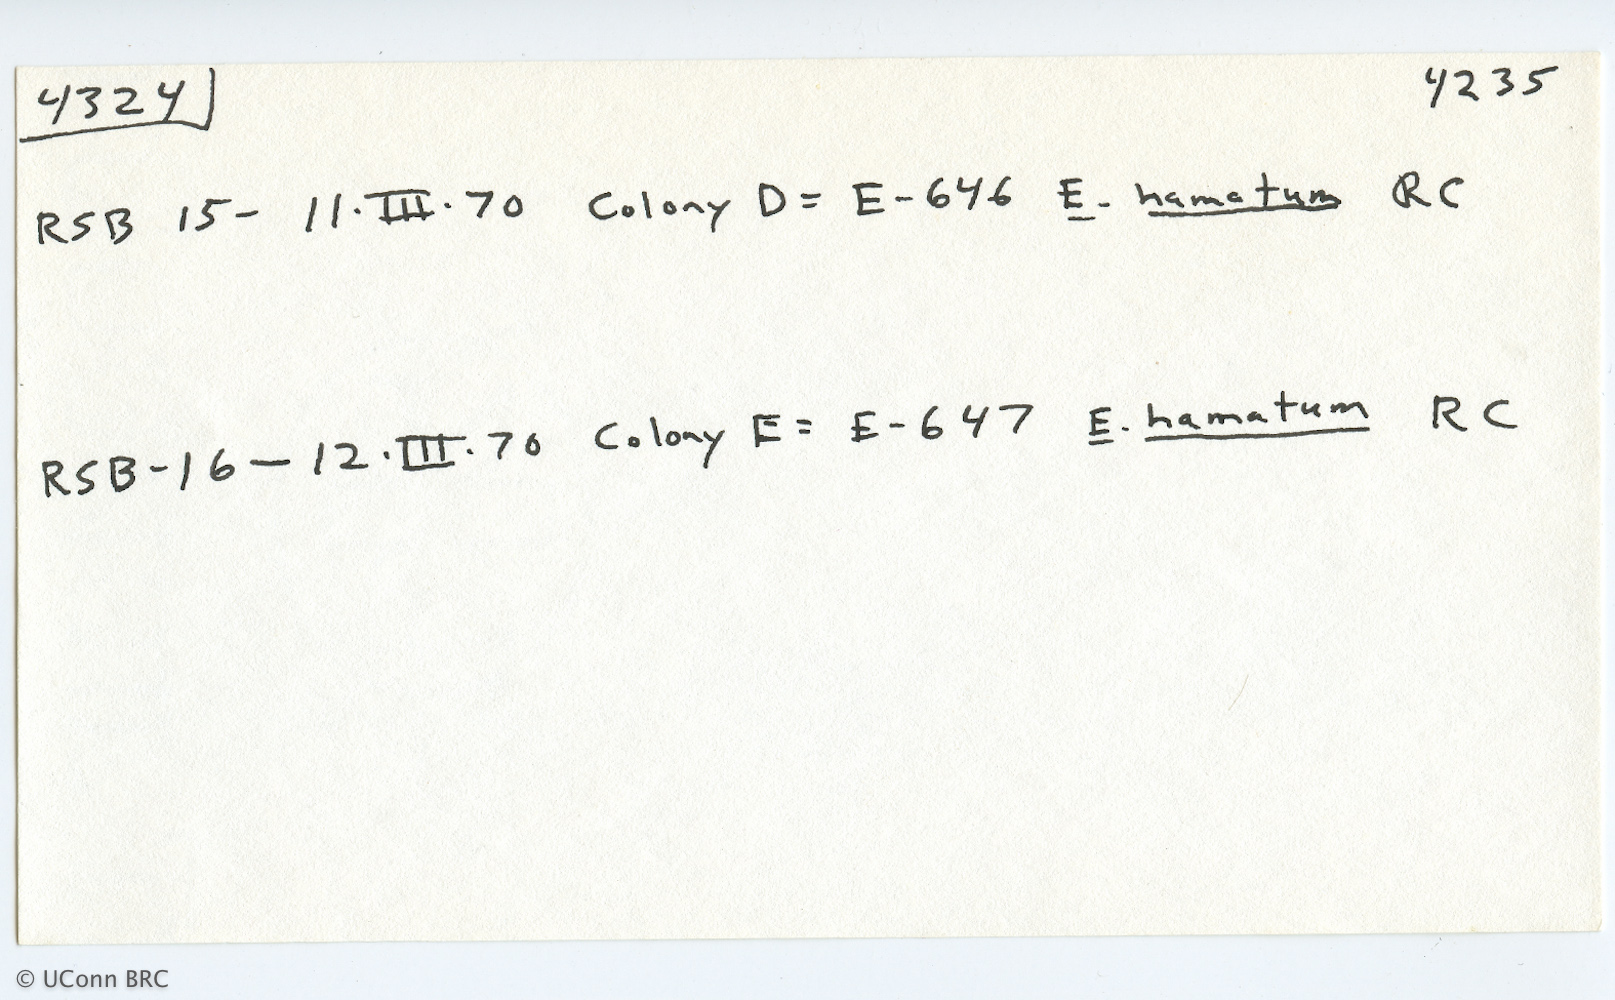 4324 4235
RSB 15- 11.III.70 Colony D = E-646 E. hamatum RC
RSB-16 - 12.III.70 Colony E = E-647 E. hamatum RC
© UConn BRC